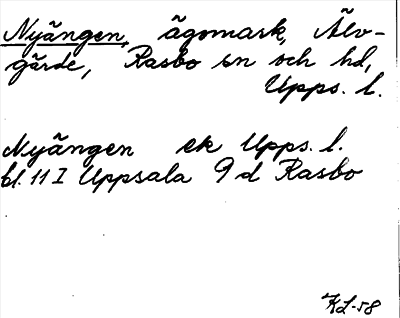 Nyängen, ägomark, Älv-
gärde, Rasbo sn och hd,
Upps. l.
Nyängen ek Upps. l.
bl. 11 I Uppsala 9 d Rasbo
KL-58